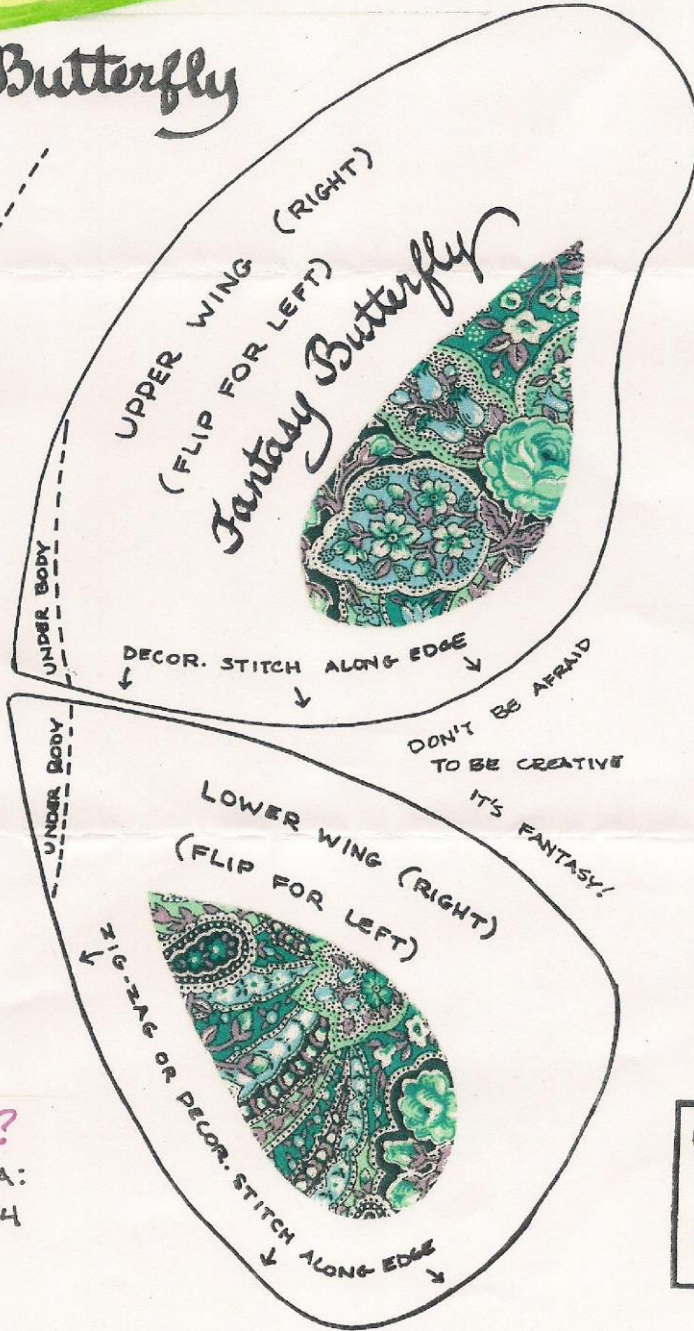 Butterfly
UPPER WING (RIGHT)
(FLIP FOR LEFT)
Fantasy Butterfly
UNDER BODY
DECOR. STITCH ALONG EDGE
DON'T BE AFRAID
TO BE CREATIVE
IT'S FANTASY!
UNDER BODY
LOWER WING (RIGHT)
(FLIP FOR LEFT)
ZIG-ZAG OR DECOR. STITCH ALONG EDGE
?
A:
4